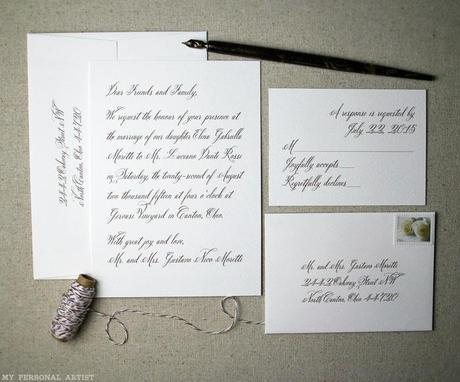 Dear Friends and Family,
We request the honour of your presence at
the marriage of our daughter Elina Gabriella
Moretto to Mr. Luciano Dante Rossi
on Saturday, the twenty-second of August
two thousand fifteen at four o'clock at
Gervasi Vineyard in Canton, Ohio.
With great joy and love,
Mr. and Mrs. Gustavo Nico Moretti
A response is requested by
July 22, 2015
M
Joyfully accepts
Regretfully declines
Mr. and Mrs. Gustavo Moretti
North Canton, Ohio 44720
North Canton, Ohio 44720
MY PERSONAL ARTIST